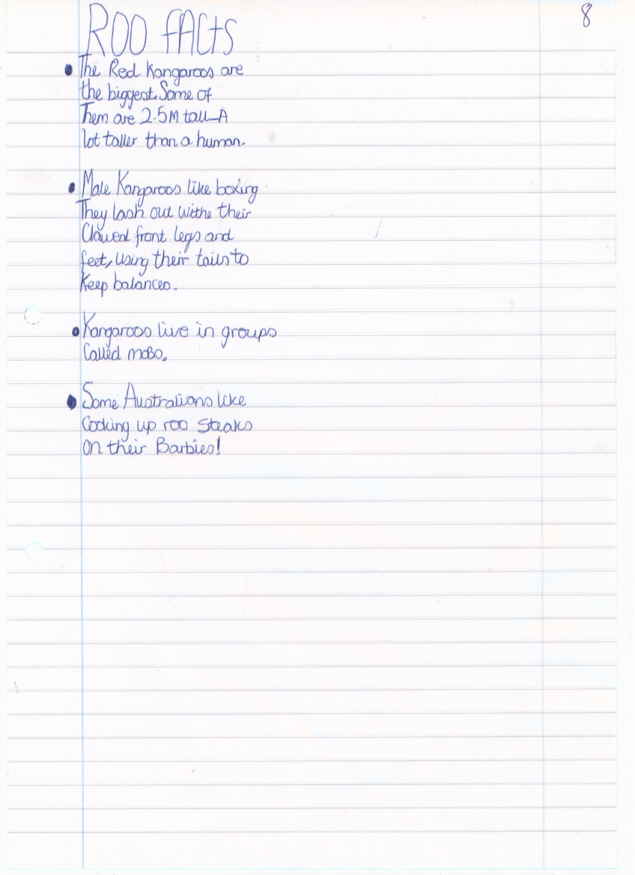 8
ROO FACTS
• The Red Kangaroos are
the biggest. Some of
Them are 2.5M tall—A
lot taller than a human.
• Male Kangaroos like boxing
They lash out withe their
Clawed front legs and
feet, using their tails to
Keep balanced.
• Kangaroos live in groups
Called mobs.
• Some Australians like
Cooking up roo steaks
On their Barbies!